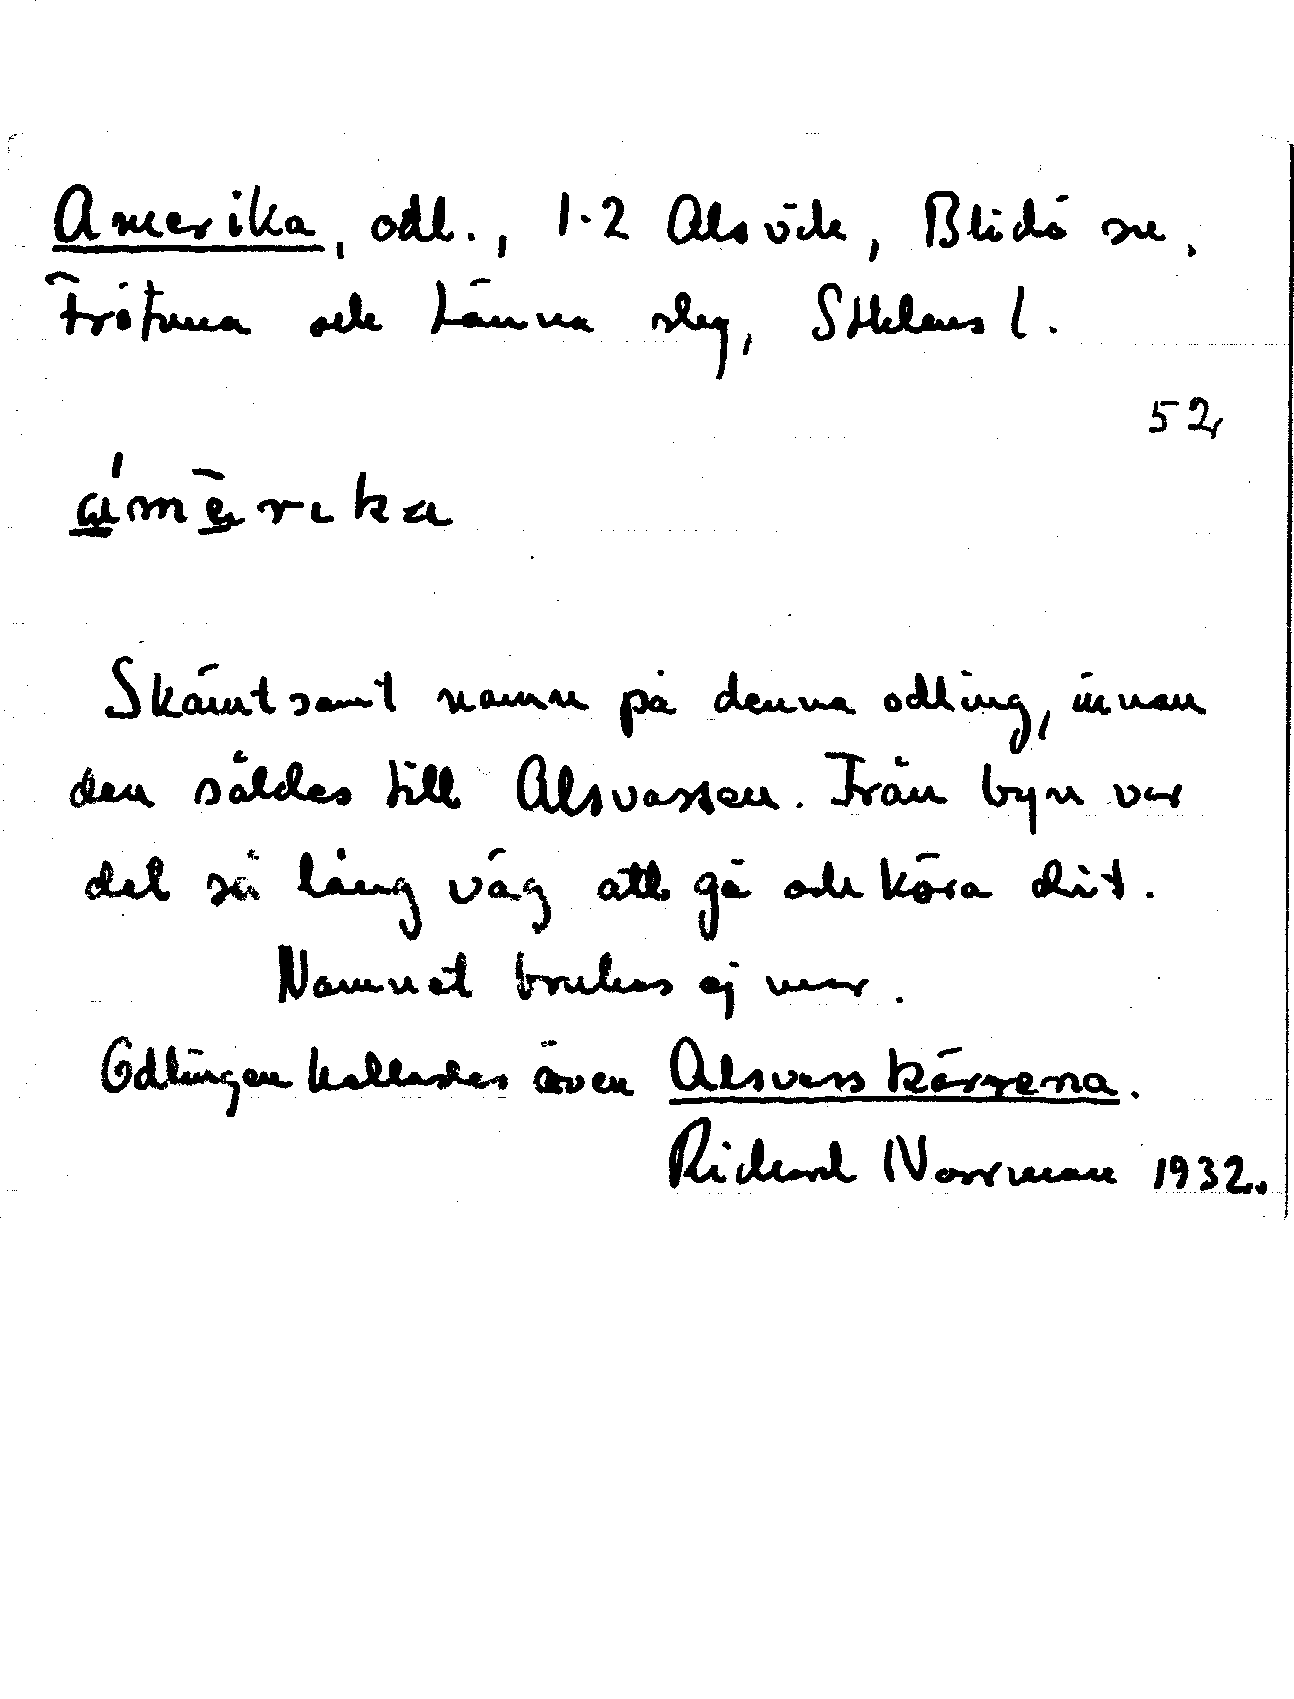 Amerika, odl., 1-2 Alsvik, Blidö sn,
Frötuna och Länna slg, Sthlms l.
52
ámēreka
Skämtsamt namn på denna odling, innan
den såldes till Alsvassen. Från byn var
det så lång väg att gå och köra dit.
Namnet brukas ej mer.
Odlingen kallades även Alsvasskärrena.
Richard Norrman 1932.